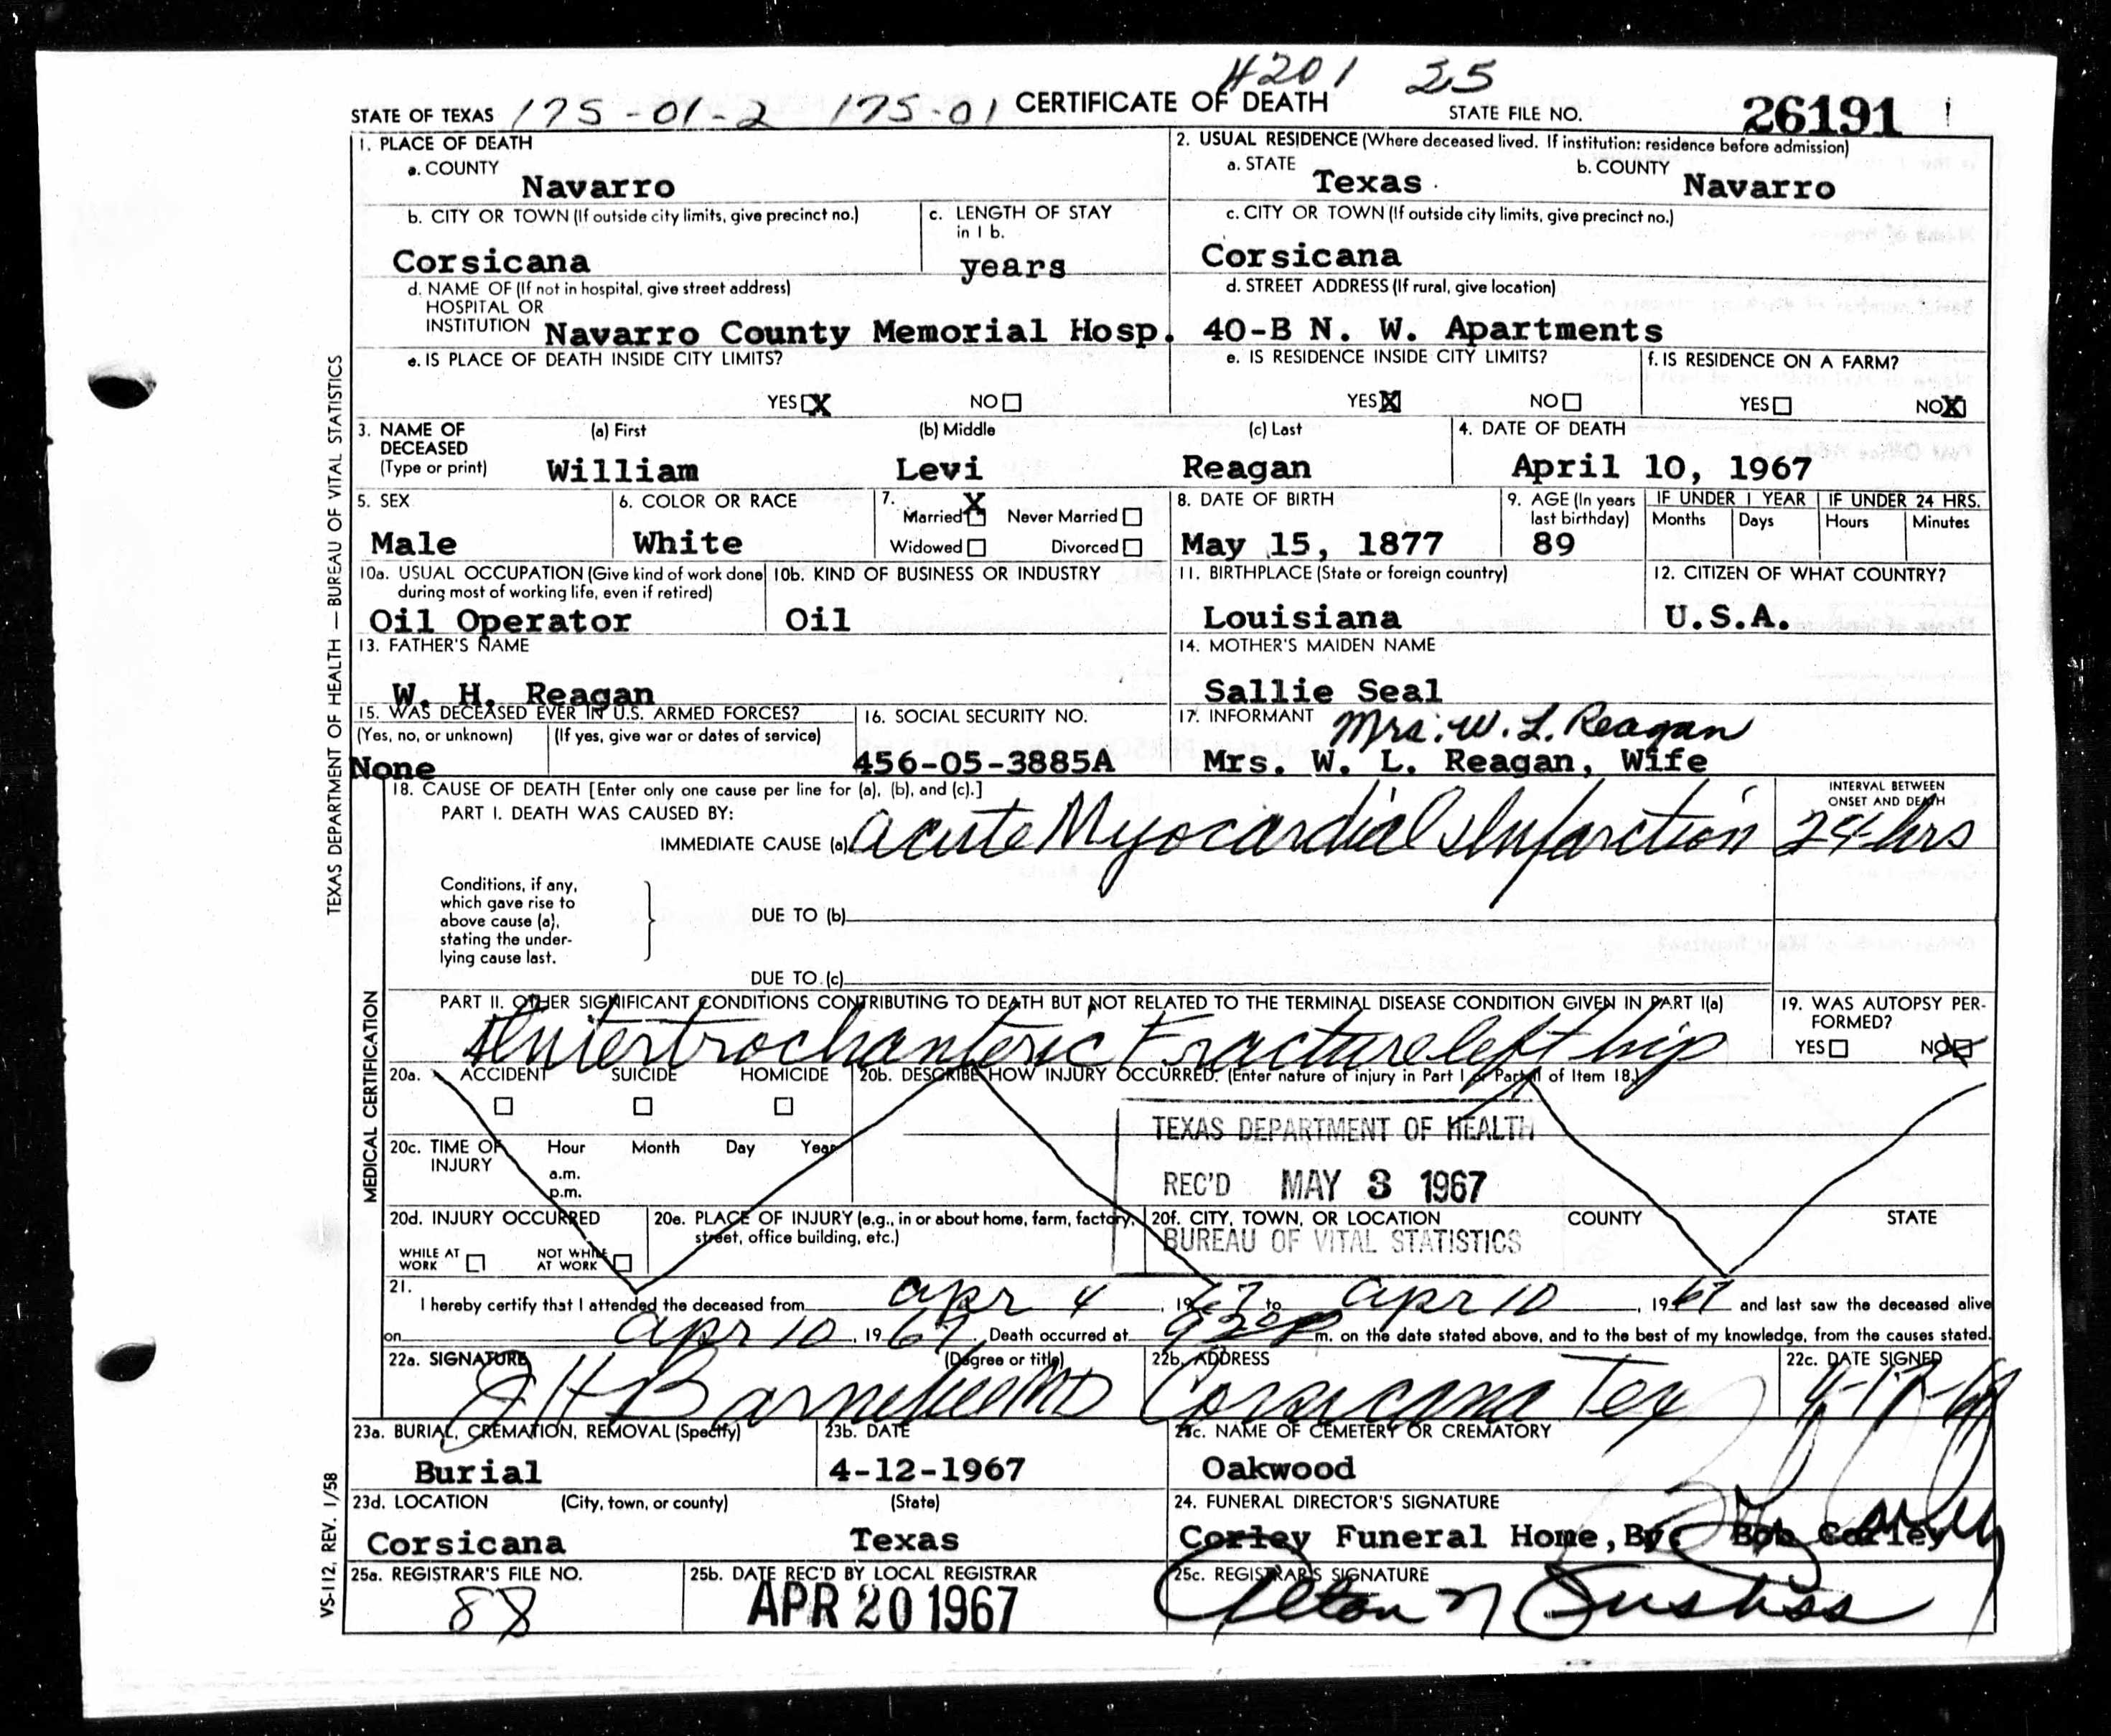 4201 25
STATE OF TEXAS 175-01-2 175-01 CERTIFICATE OF DEATH STATE FILE NO. 26191
1. PLACE OF DEATH
a. COUNTY Navarro
2. USUAL RESIDENCE (Where deceased lived. If institution: residence before admission)
a. STATE Texas b. COUNTY Navarro
b. CITY OR TOWN (If outside city limits, give precinct no.)
Corsicana
c. LENGTH OF STAY
in 1 b.
years
c. CITY OR TOWN (If outside city limits, give precinct no.)
Corsicana
d. NAME OF (If not in hospital, give street address)
HOSPITAL OR
INSTITUTION Navarro County Memorial Hosp.
d. STREET ADDRESS (If rural, give location)
40-B N. W. Apartments
e. IS PLACE OF DEATH INSIDE CITY LIMITS?
YES X NO
e. IS RESIDENCE INSIDE CITY LIMITS?
YES X NO
f. IS RESIDENCE ON A FARM?
YES NO X
3. NAME OF
DECEASED
(Type or print)
(a) First (b) Middle (c) Last
William Levi Reagan
4. DATE OF DEATH
April 10, 1967
5. SEX
Male
6. COLOR OR RACE
White
7. X
Married Never Married
Widowed Divorced
8. DATE OF BIRTH
May 15, 1877
9. AGE (In years
last birthday)
89
IF UNDER 1 YEAR
Months Days
IF UNDER 24 HRS.
Hours Minutes
10a. USUAL OCCUPATION (Give kind of work done
during most of working life, even if retired)
Oil Operator
10b. KIND OF BUSINESS OR INDUSTRY
Oil
11. BIRTHPLACE (State or foreign country)
Louisiana
12. CITIZEN OF WHAT COUNTRY?
U.S.A.
13. FATHER'S NAME
W. H. Reagan
14. MOTHER'S MAIDEN NAME
Sallie Seal
15. WAS DECEASED EVER IN U.S. ARMED FORCES?
(Yes, no, or unknown) (If yes, give war or dates of service)
None
16. SOCIAL SECURITY NO.
456-05-3885A
17. INFORMANT Mrs. W. L. Reagan
Mrs. W. L. Reagan, Wife
18. CAUSE OF DEATH [Enter only one cause per line for (a), (b), and (c).]
PART I. DEATH WAS CAUSED BY:
IMMEDIATE CAUSE (a) Acute Myocardial Infarction
INTERVAL BETWEEN
ONSET AND DEATH
24 hrs
Conditions, if any,
which gave rise to
above cause (a),
stating the under-
lying cause last.
DUE TO (b)
DUE TO (c)
PART II. OTHER SIGNIFICANT CONDITIONS CONTRIBUTING TO DEATH BUT NOT RELATED TO THE TERMINAL DISEASE CONDITION GIVEN IN PART I(a)
Intertrochanteric Fracture left hip
19. WAS AUTOPSY PER-
FORMED?
YES NO X
20a. ACCIDENT SUICIDE HOMICIDE
20b. DESCRIBE HOW INJURY OCCURRED. (Enter nature of injury in Part I or Part II of Item 18.)
20c. TIME OF
INJURY
Hour Month Day Year
a.m.
p.m.
TEXAS DEPARTMENT OF HEALTH
REC'D MAY 3 1967
BUREAU OF VITAL STATISTICS
20d. INJURY OCCURRED
WHILE AT
WORK
NOT WHILE
AT WORK
20e. PLACE OF INJURY (e.g., in or about home, farm, factory,
street, office building, etc.)
20f. CITY, TOWN, OR LOCATION COUNTY STATE
21.
I hereby certify that I attended the deceased from Apr 4, 1967 to Apr 10, 1967 and last saw the deceased alive
on Apr 10, 1967. Death occurred at 920 P m. on the date stated above, and to the best of my knowledge, from the causes stated.
22a. SIGNATURE (Degree or title)
MD
22b. ADDRESS
Corsicana Tex
22c. DATE SIGNED
23a. BURIAL, CREMATION, REMOVAL (Specify)
Burial
23b. DATE
4-12-1967
23c. NAME OF CEMETERY OR CREMATORY
Oakwood
23d. LOCATION (City, town, or county) (State)
Corsicana Texas
24. FUNERAL DIRECTOR'S SIGNATURE
Corley Funeral Home, By: Bob Corley
25a. REGISTRAR'S FILE NO.
88
25b. DATE REC'D BY LOCAL REGISTRAR
APR 20 1967
25c. REGISTRAR'S SIGNATURE
TEXAS DEPARTMENT OF HEALTH — BUREAU OF VITAL STATISTICS
MEDICAL CERTIFICATION
VS-112, REV. 1/58